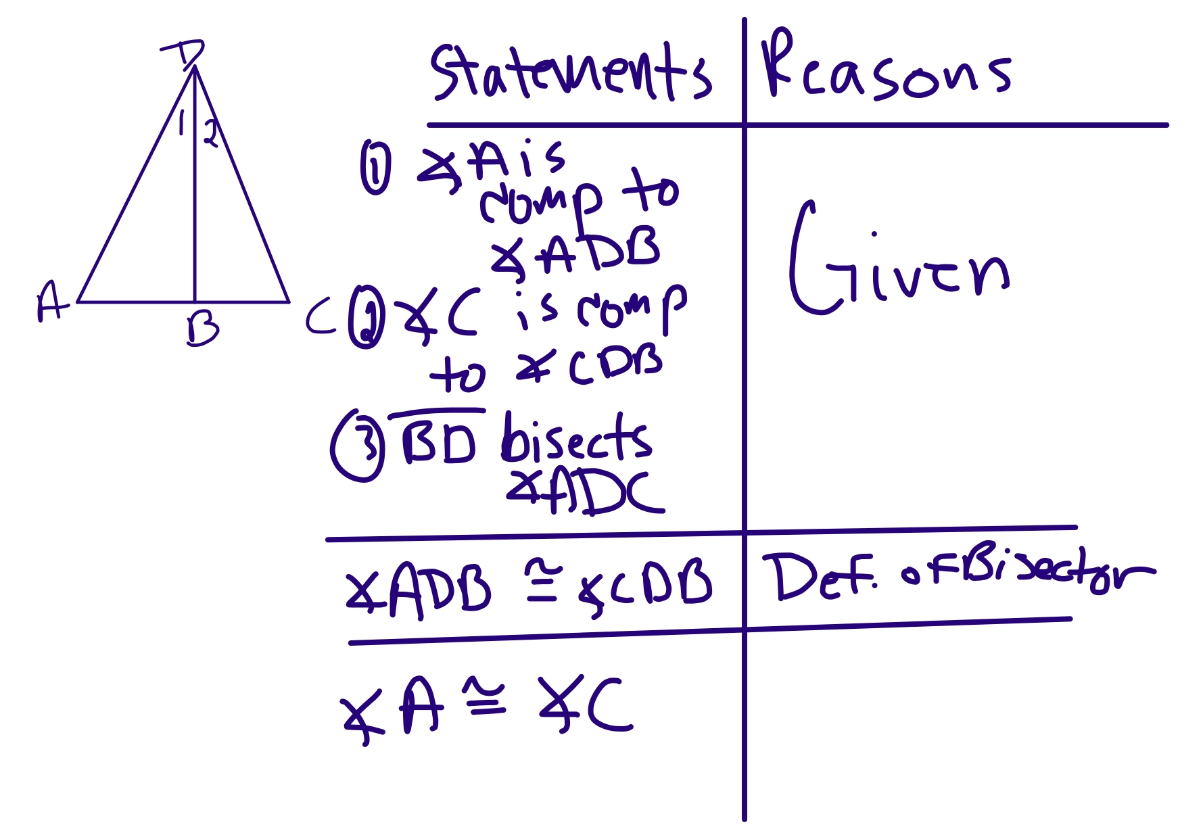 D
1 2
A
B
C
Statements Reasons
① ∡A is
comp to
∡ADB
② ∡C is comp
to ∡CDB
Given
③ BD bisects
∡ADC
∡ADB ≅ ∡CDB Def. of Bisector
∡A ≅ ∡C